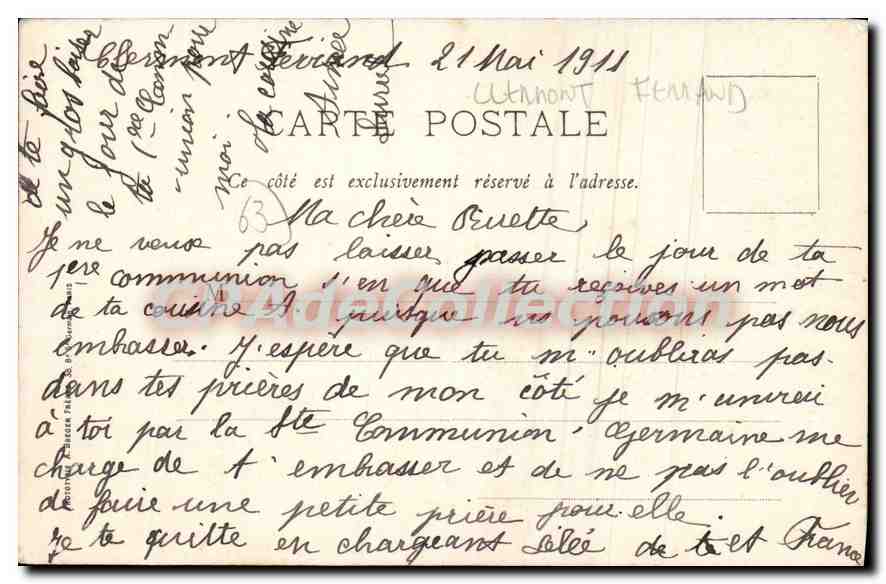 Clermont Ferrand 21 Mai 1911
CLERMONT FERRAND
CARTE POSTALE
Ce côté est exclusivement réservé à l'adresse.
63
Ma chère
Je ne veux pas laisser passer le jour de ta
1ere communion s'en que tu reçoives un mot
de ta cousine M. puisque ns pouvons pas nous
embasser. J'espère que tu m'oubliras pas
dans tes prières de mon côté je m'unirai
à toi par la Ste Communion. Germaine me
charge de t'embasser et de ne pas l'oublier
de faire une petite prière pour elle.
Je te quitte en chargeant de te et France
de te faire
un gros baiser
le jour de
ta 1ère Comm
-union pour
moi
Ta cousine
Aimée
CPA-AdeCollection
PHOTOTYPIE A. BREGER FRÈRES
PARIS